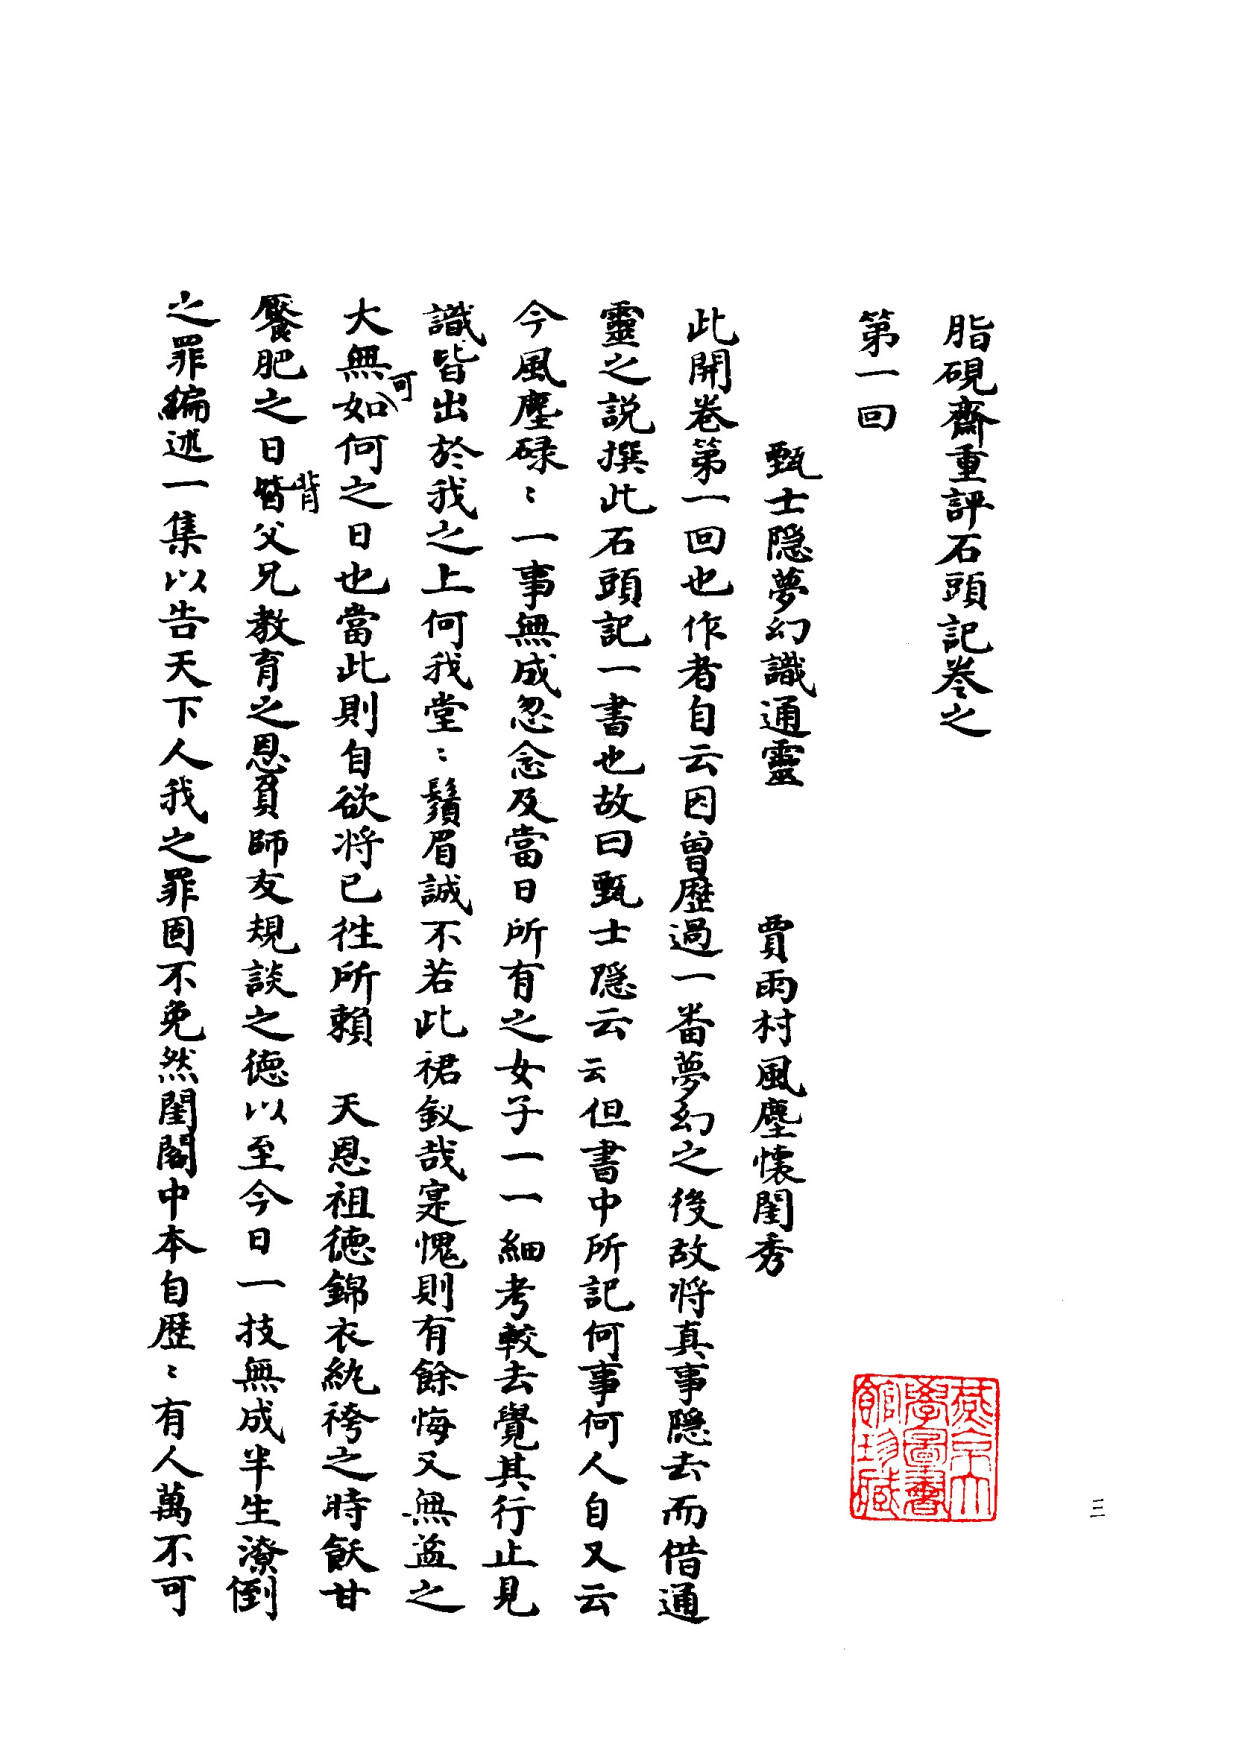 脂硯齋重評石頭記卷之
第一回
甄士隱夢幻識通靈　賈雨村風塵懷閨秀
此開卷第一回也作者自云因曾歷過一番夢幻之後故將真事隱去而借通
靈之說撰此石頭記一書也故曰甄士隱云云但書中所記何事何人自又云
今風塵碌：一事無成忽念及當日所有之女子一一細考較去覺其行止見
識皆出於我之上何我堂：鬚眉誠不若此裙釵哉寔愧則有餘悔又無益之
大無可如何之日也當此則自欲將已徃所賴　天恩祖德錦衣紈袴之時飫甘
饜肥之日背父兄教育之恩負師友規談之德以至今日一技無成半生潦倒
之罪編述一集以告天下人我之罪固不免然閨閣中本自歷：有人萬不可
燕京大學圖書館珍藏
三